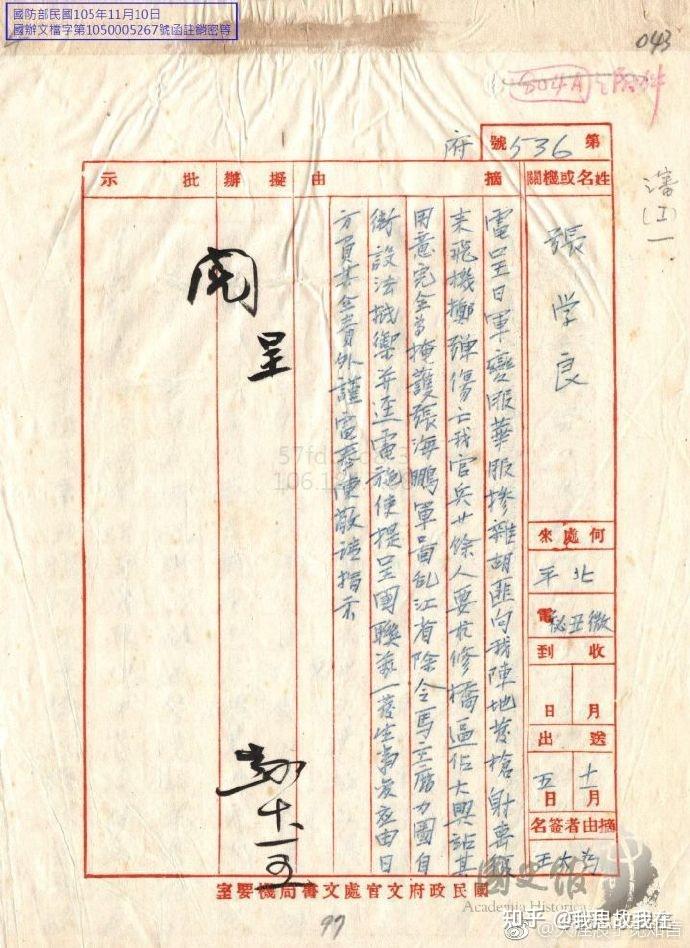 國防部民國105年11月10日
國辦文檔字第1050005267號函註銷密等
043
804A之附件
府
第536號
瀋
(I)
一
姓名或機關
張学良
何處來
北平
微丑秘電
收到
月
日
送出
十一月
五日
摘由者簽名
摘由
電四五日軍變服華服摻雜胡匪向我陣地發槍射擊
來飛機擲彈傷亡我官兵廿餘人要
修橋逼佔大興站其
用意完全為掩護張海鵬軍
乱江省除令馬主席力圖自
衛設法抵禦并逕電施使提呈國聯萬一發生事變應由日
方負其全責外謹電奉陳敬請指示
擬辦
批示
閱
呈
十一
五
國民政府文官處文書局機要室
97
國史館
Academia Historica
知乎 @我思故我在